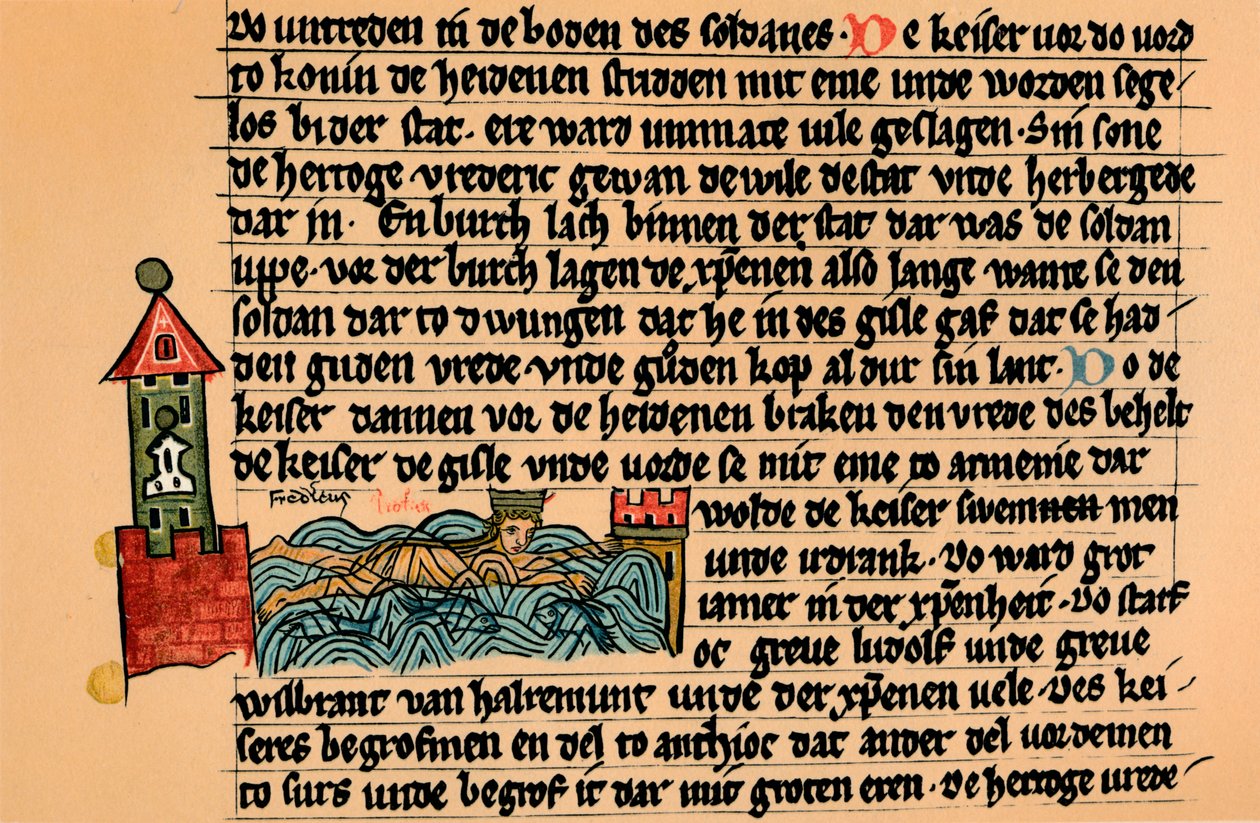 Do untreden in de boden des soldanes. De keiser vor do vord
to konin de heidenen stridden mit eme unde worden sege
los bi der stat. ere ward unmate vile geslagen. Sin sone
de hertoge vrederic gewan de wile de stat vnde herbergede
dar in. En burch lach binnen der stat dar was de soldan
uppe. vor der burch lagen de xp̄enen also lange wante se den
soldan dar to dwungen dat he in des gisle gaf dat se had
den guden vrede vnde gůden kop al dur sin lant. Do de
keiser dannen vor de heidenen braken den vrede des behelt
de keiser de gisle vnde vorde se mit eme to armenie dar
Fredicus
wolde de keiser swemmen men
unde irdrank. Do ward grot
iamer in der xp̄enheit. Do starf
oc greve ludolf unde greve
wilbrant van halremunt unde der xp̄enen vele. Des kei
seres begrof men en del to anthioc dat ander del vor de men
to surs unde begrof it dar mit groten eren. De hertoge vrede